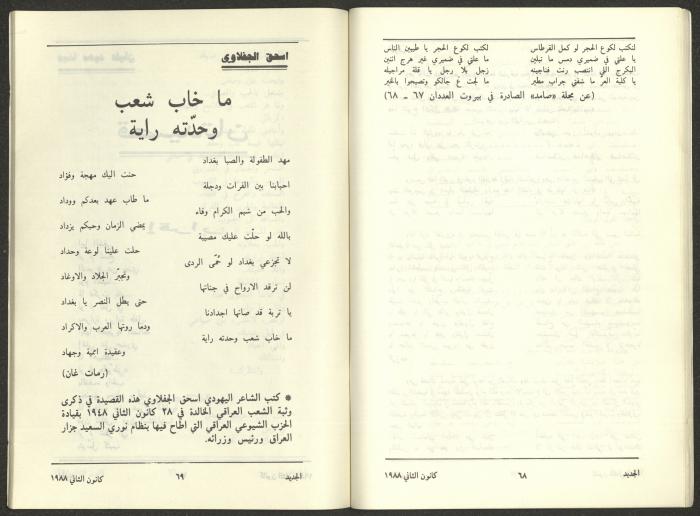 لنكتب لكوع الحجر لو كمل القرطاس لكتب لكوع الحجر يا طيبين الناس
يا علتي في ضميري دمس ما تبلين ما علتي في ضميري غير هرج اثنين
البكرج اللي انتصب رنت فناجينه زجل بلا رجل يا قلة مراجيله
يا كلبة العز ما شفتي جراب مطير ما لجت ع جالكو وتصبحوا بالخير
(عن مجلة «صامد» الصادرة في بيروت العددان ٦٧ ـ ٦٨)
الجديد ٦٨ كانون الثاني ١٩٨٨
اسحق الجفلاوي
ما خاب شعب
وحدّته راية
مهد الطفولة والصبا بغداد
حنت اليك مهجة وفؤاد
احبابنا بين الفرات ودجلة
ما طاب عهد بعدكم ووداد
والحب من شيم الكرام وفاء
يمضي الزمان وحبكم يزداد
بالله لو حلّت عليك مصيبة
حلت علينا لوعة وحداد
لا تجزعي بغداد لو حُمّى الردى
وتجبّر الجلاد والاوغاد
لن ترقد الارواح في جناتها
حتى يطل النصر يا بغداد
يا تربة قد صانها اجدادنا
ودما روتها العرب والاكراد
ما خاب شعب وحدته راية
وعقيدة اممية وجهاد
(رمات غان)
* كتب الشاعر اليهودي اسحق الجفلاوي هذه القصيدة في ذكرى
وثبة الشعب العراقي الخالدة في ٢٨ كانون الثاني ١٩٤٨ بقيادة
الحزب الشيوعي العراقي التي اطاح فيها بنظام نوري السعيد جزار
العراق ورئيس وزرائه.
الجديد ٦٩ كانون الثاني ١٩٨٨